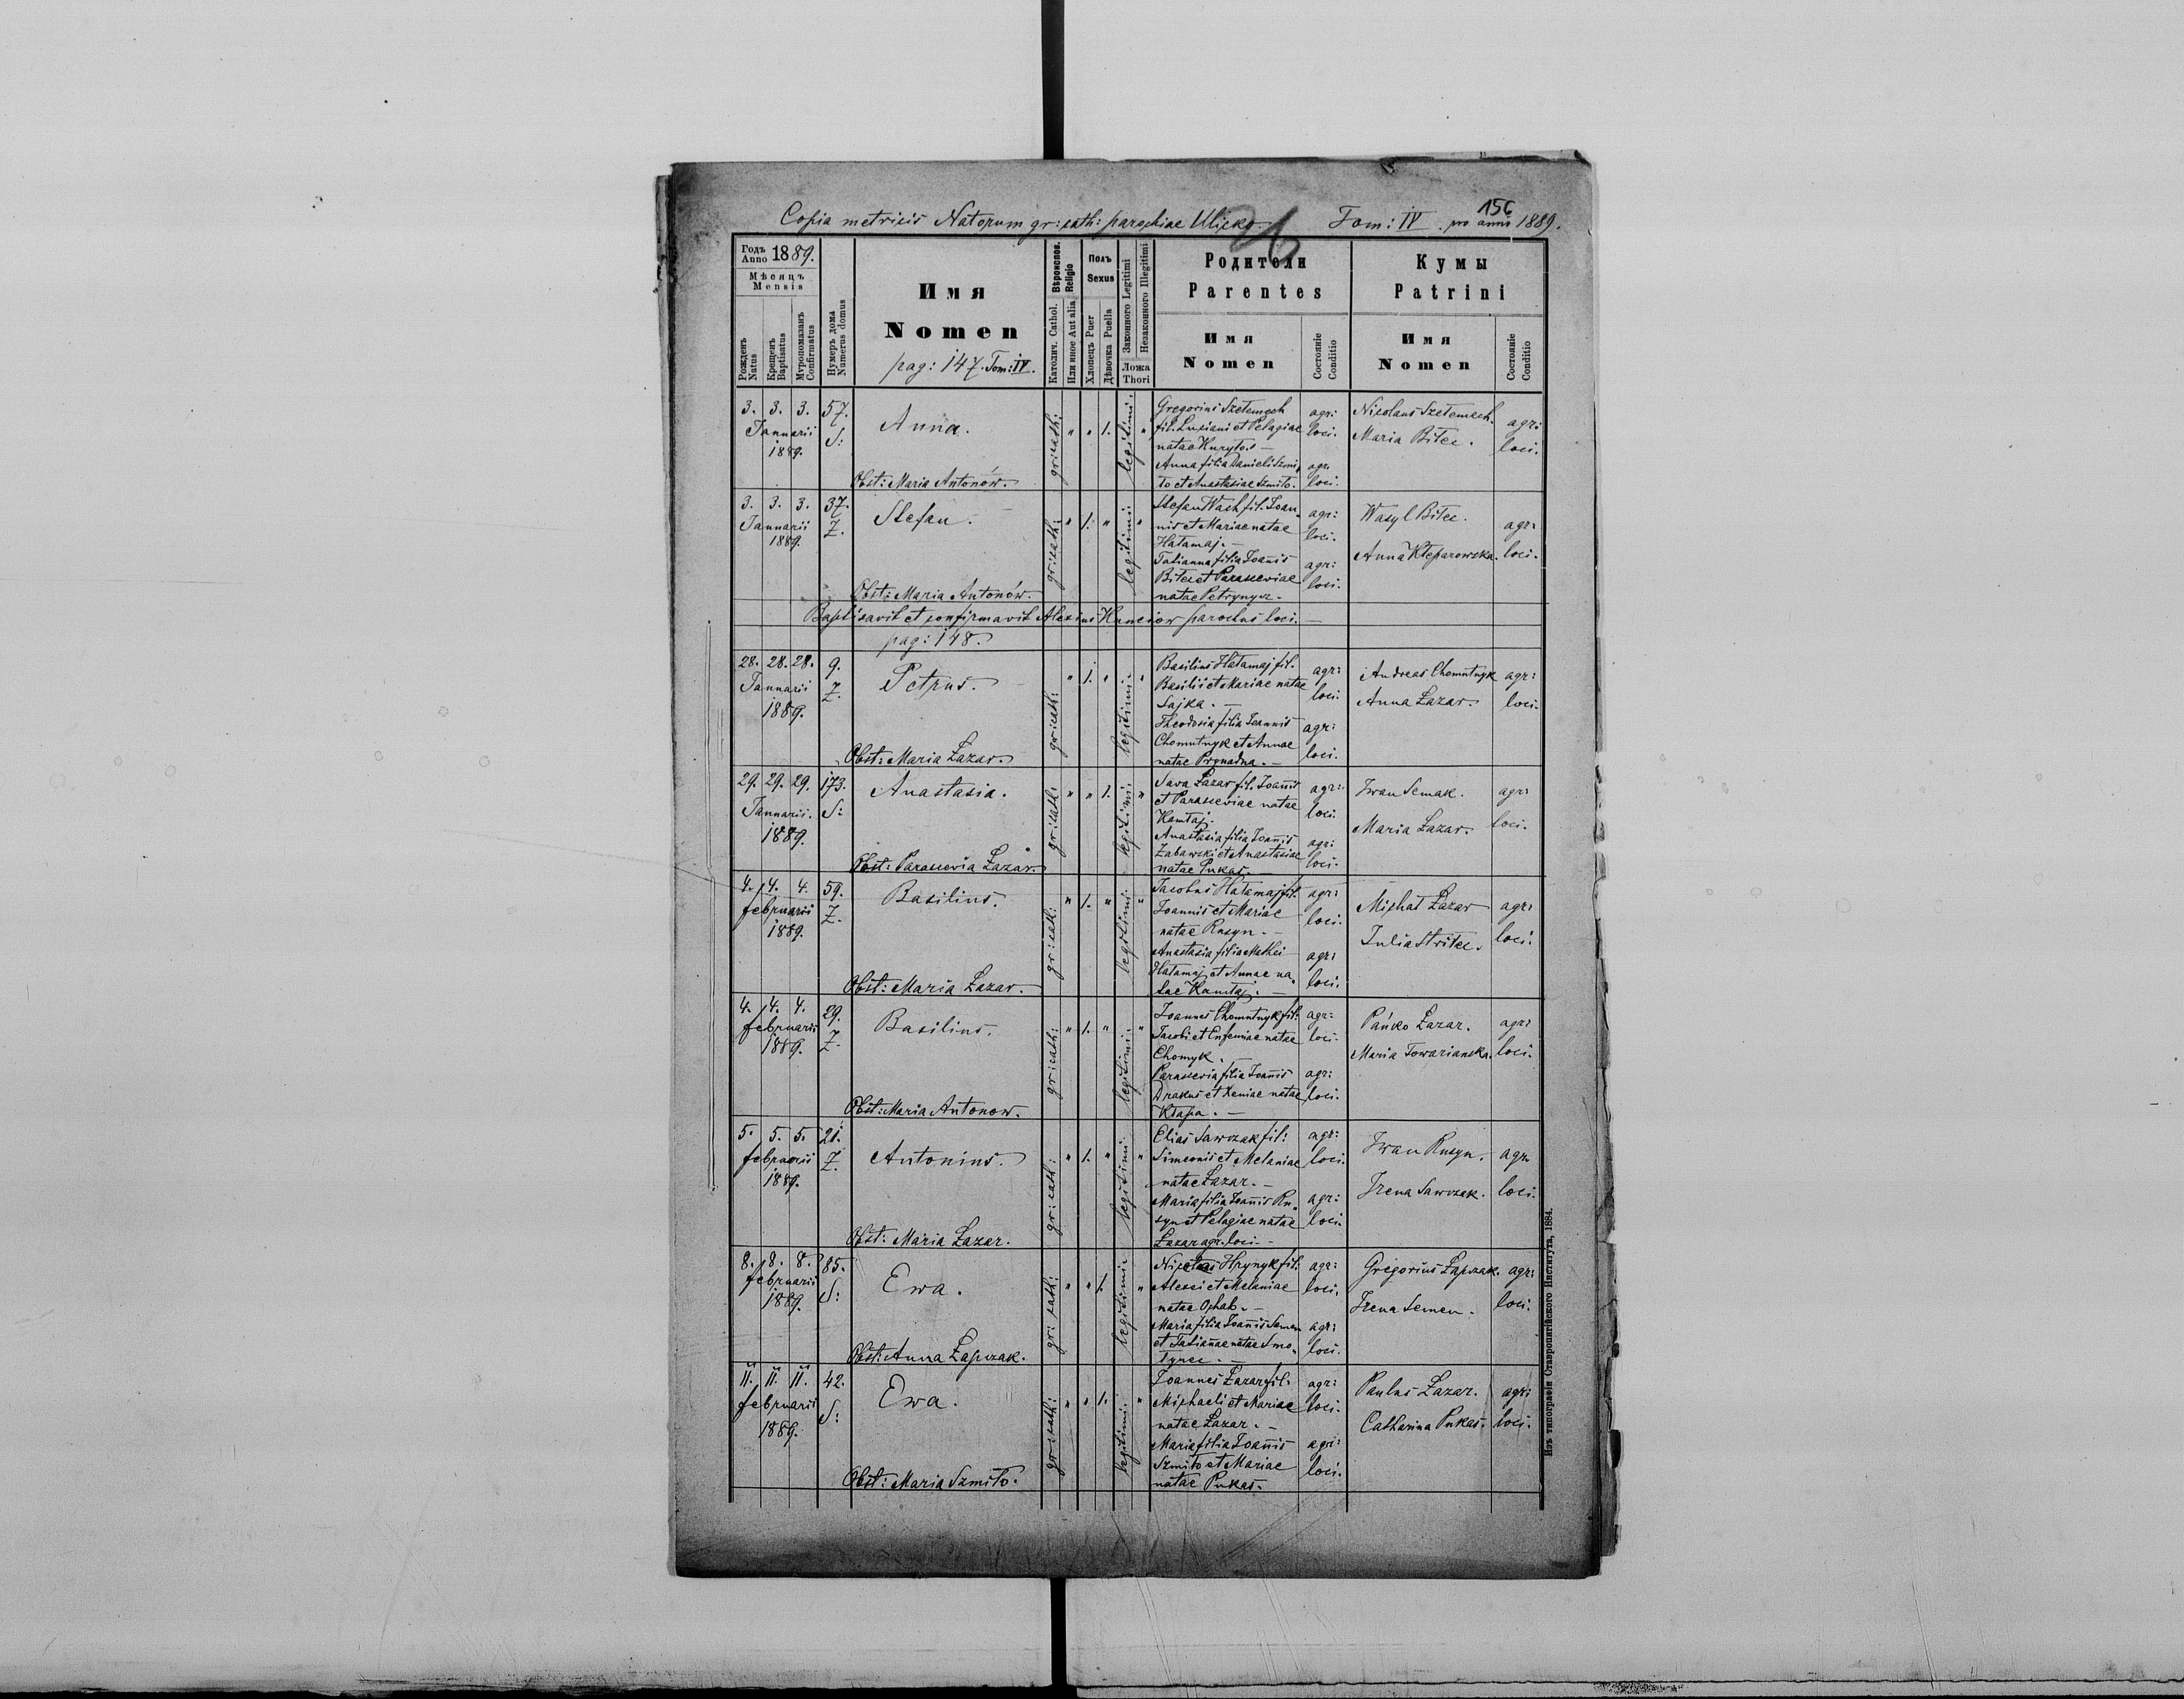 156
Copia metricis Natorum gr: cath: parochiae Ulicko. Tom: IV. pro anno 1889.
26
Годъ
Anno 1889.
Мѣсяцъ
Mensis
Рожденъ
Natus
Крещенъ
Baptisatus
Мѵропомазанъ
Confirmatus
Нумеръ дома
Numerus domus
Имя
Nomen
pag: 147. Tom: IV.
Вѣроиспов.
Religio
Католич. Cathol.
Или иное Aut alia
Полъ
Sexus
Хлопецъ Puer
Дѣвочка Puella
Законного Legitimi
Незаконного Illegitimi
Ложа
Thori
Родители
Parentes
Имя
Nomen
Состояніе
Conditio
Кумы
Patrini
Имя
Nomen
Состояніе
Conditio
3. 3. 3.
Januarii
1889.
57.
S:
Anna.
Obst: Maria Antonów.
gr: cath:
" " 1.
legitimi.
"
Gregorius Szełemech
fil. Luciani et Pelagiae
natae Kurytos —
Anna filia Danieli Szmi„
to et Anastasiae Szmito.
agr:
loci.
agr.
loci.
Nicolaus Szełemech.
Maria Bitec.
agr:
loci.
3. 3. 3.
Januarii
1889.
37.
Z.
Stefan.
Obst: Maria Antonów.
gr: cath:
" 1. "
legitimi:
"
Stefan Wach fil. Joan„
nis et Mariae natae
Hatamaj. —
Tatianna filia Joanis
Bitec et Parasceviae
natae Petrynycz.
agr:
loci.
agr:
loci.
Wasyl Bitec.
Anna Kłeparowska.
agr:
loci.
Baptisavit et confirmavit Alexius Kunciow parochus loci. —
pag: 148.
28. 28. 28.
Januarii
1889.
9.
Z.
Petrus.
Obst: Maria Łazar.
gr: cath:
" 1. "
legitimi:
"
Basilius Hatamaj fil.
Basilii et Mariae natae
Sajka. —
Theodosia filia Joannis
Chomutnyk et Annae
natae Prynadna. —
agr:
loci.
agr:
loci.
Andreas Chomutnyk
Anna Łazar.
agr:
loci.
29. 29. 29.
Januarii.
1889.
173.
S:
Anastasia.
Obst: Parascevia Łazar.
gr: cath:
" " 1.
legitimi:
"
Sava Łazar fil. Joannis
et Parasceviae natae
Kamtaj.
Anastasia filia Joanis
Zabawski et Anastasiae
natae Pukas. —
agr:
loci
agr:
loci.
Iwan Semak.
Maria Łazar.
agr:
loci.
4. 4. 4.
februarii
1889.
59.
Z.
Basilius.
Obst: Maria Łazar.
gr: cath:
" 1. "
legitimi:
"
Jacobus Hatamaj fil.
Joannis et Mariae
natae Rusyn. —
Anastasia filia Mathei
Hatamaj et Annae na„
tae Kamtaj. —
agr:
loci.
agr:
loci.
Michał Łazar
Julia Stritec.
agr:
loci.
4. 4. 4.
februarii
1889.
29.
Z.
Basilius.
Obst: Maria Antonow.
gr: cath:
" 1. "
legitimi:
"
Joannes Chomutnyk fil:
Jacobi et Eufemiae natae
Chomyk. —
Parascevia filia Joanis
Drakus et Xeniae natae
Kłapa. —
agr:
loci.
agr:
loci.
Pańko Łazar.
Maria Towarianska.
agr:
loci.
5. 5. 5.
februarii
1889.
21.
Z.
Antonius.
Obst: Maria Łazar.
gr: cath:
" 1. "
legitimi:
"
Elias Sawczak fil:
Simeonis et Melaniae
natae Łazar. —
Maria filia Joanis Ru„
syn et Pelagiae natae
Łazar agr. loci. —
agr:
loci.
agr:
loci.
Iwan Rusyn.
Irena Sawczak.
agr.
loci.
8. 8. 8.
februarii
1889.
85.
S:
Ewa.
Obst: Anna Łapczak.
gr: cath:
" " 1.
legitimi:
"
Nicolaus Hrynyk fil:
Alexii et Melaniae
natae Ochab. —
Maria filia Joanis Semen
et Tatiannae natae Smo„
tynec. —
agr:
loci.
agr:
loci.
Gregorius Łapczak.
Irena Semen.
agr:
loci.
11. 11. 11.
februarii
1889.
42.
S:
Ewa.
Obst: Maria Szmito.
gr: cath:
" " 1.
legitimi:
"
Joannes Łazar fil.
Michaeli et Mariae
natae Łazar. —
Maria filia Joanis
Szmito et Mariae
natae Pukas.
agr:
loci.
agr:
loci.
Paulus Łazar.
Catharina Pukas.
agr:
loci.
Изъ типографіи Ставропигійского Института, 1884.